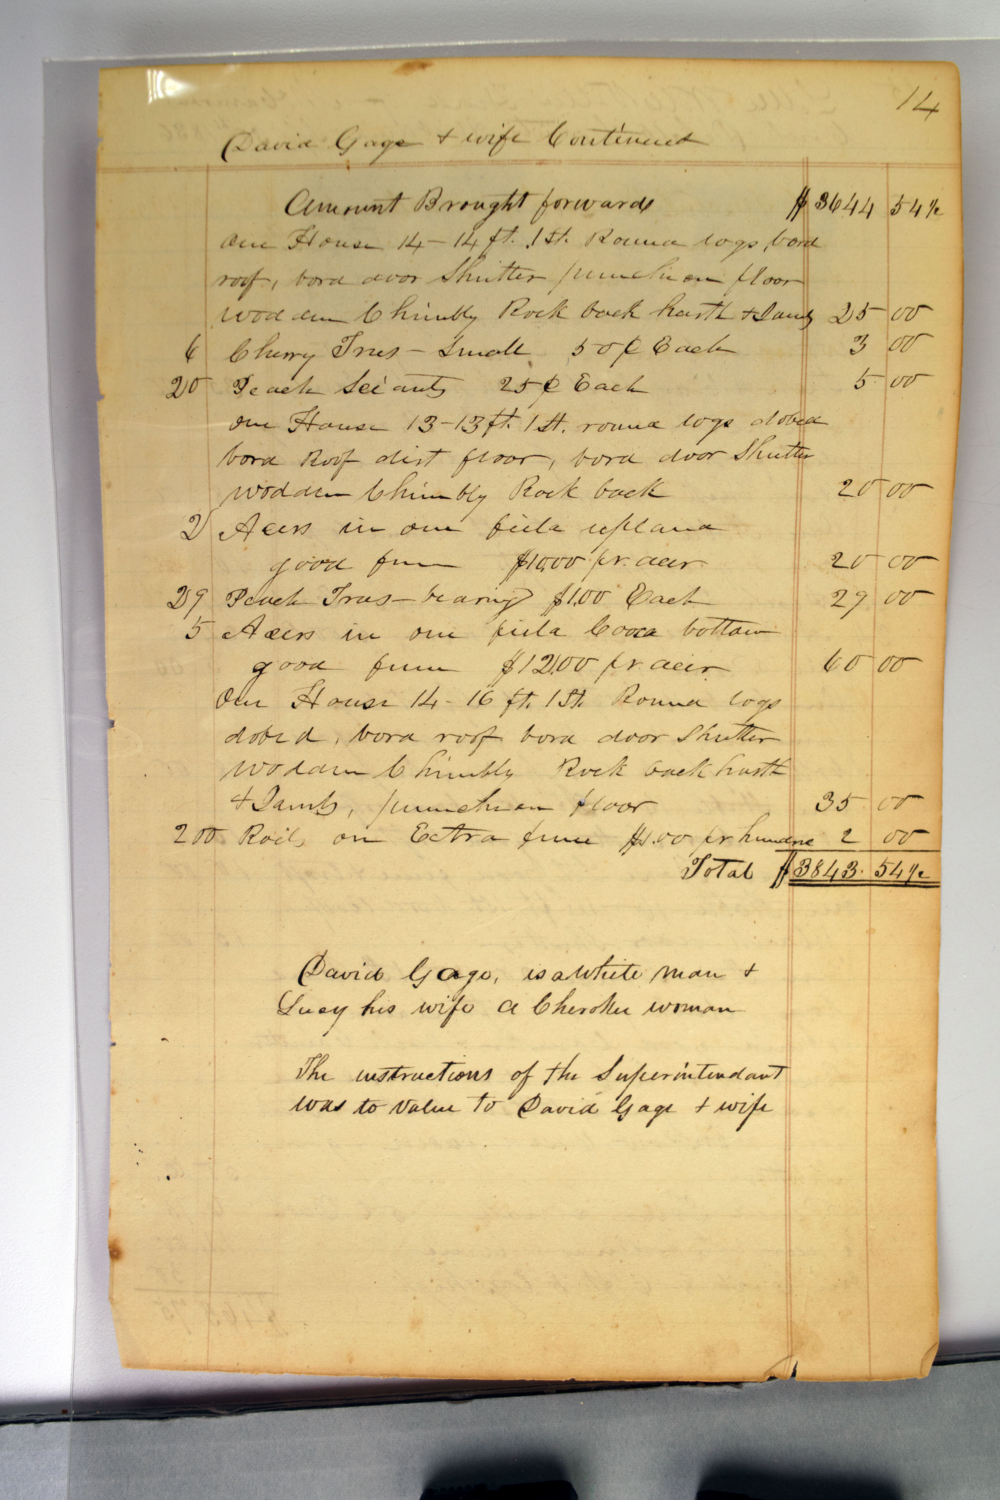 14
David Gage & wife Continued
Amount Brought forward $3644 54½
One House 14-14 ft. 1 St. Round logs, bord
roof, bord door Shutter puncheon floor
wodden Chimbly Rock back harth & Jambs 25 00
6 Cherry Trees - Small 50¢ Each 3 00
20 Peach Sciants 25¢ Each 5 00
One House 13-13 ft. 1 St. round logs dobed
bord Roof dirt floor, bord door Shutter
wodden Chimbly Rock back 20 00
2 Acers in one field upland
good fence $10.00 pr. acer 20 00
29 Peach Trees - bearing $1.00 Each 29 00
5 Acers in one field Coosa bottom
good fence $12.00 pr. acer 60 00
One House 14-16 ft. 1 St. Round logs
dobed, bord roof bord door Shutter
Wodden Chimbly Rock back harth
& Jambs, puncheon floor 35 00
200 Rails on Extra fence $1.00 pr hundred 2 00
Total $3843.54½
David Gage, is a White man &
Lucy his wife a Cherokee woman
The instructions of the Superintendant
was to value to David Gage & wife